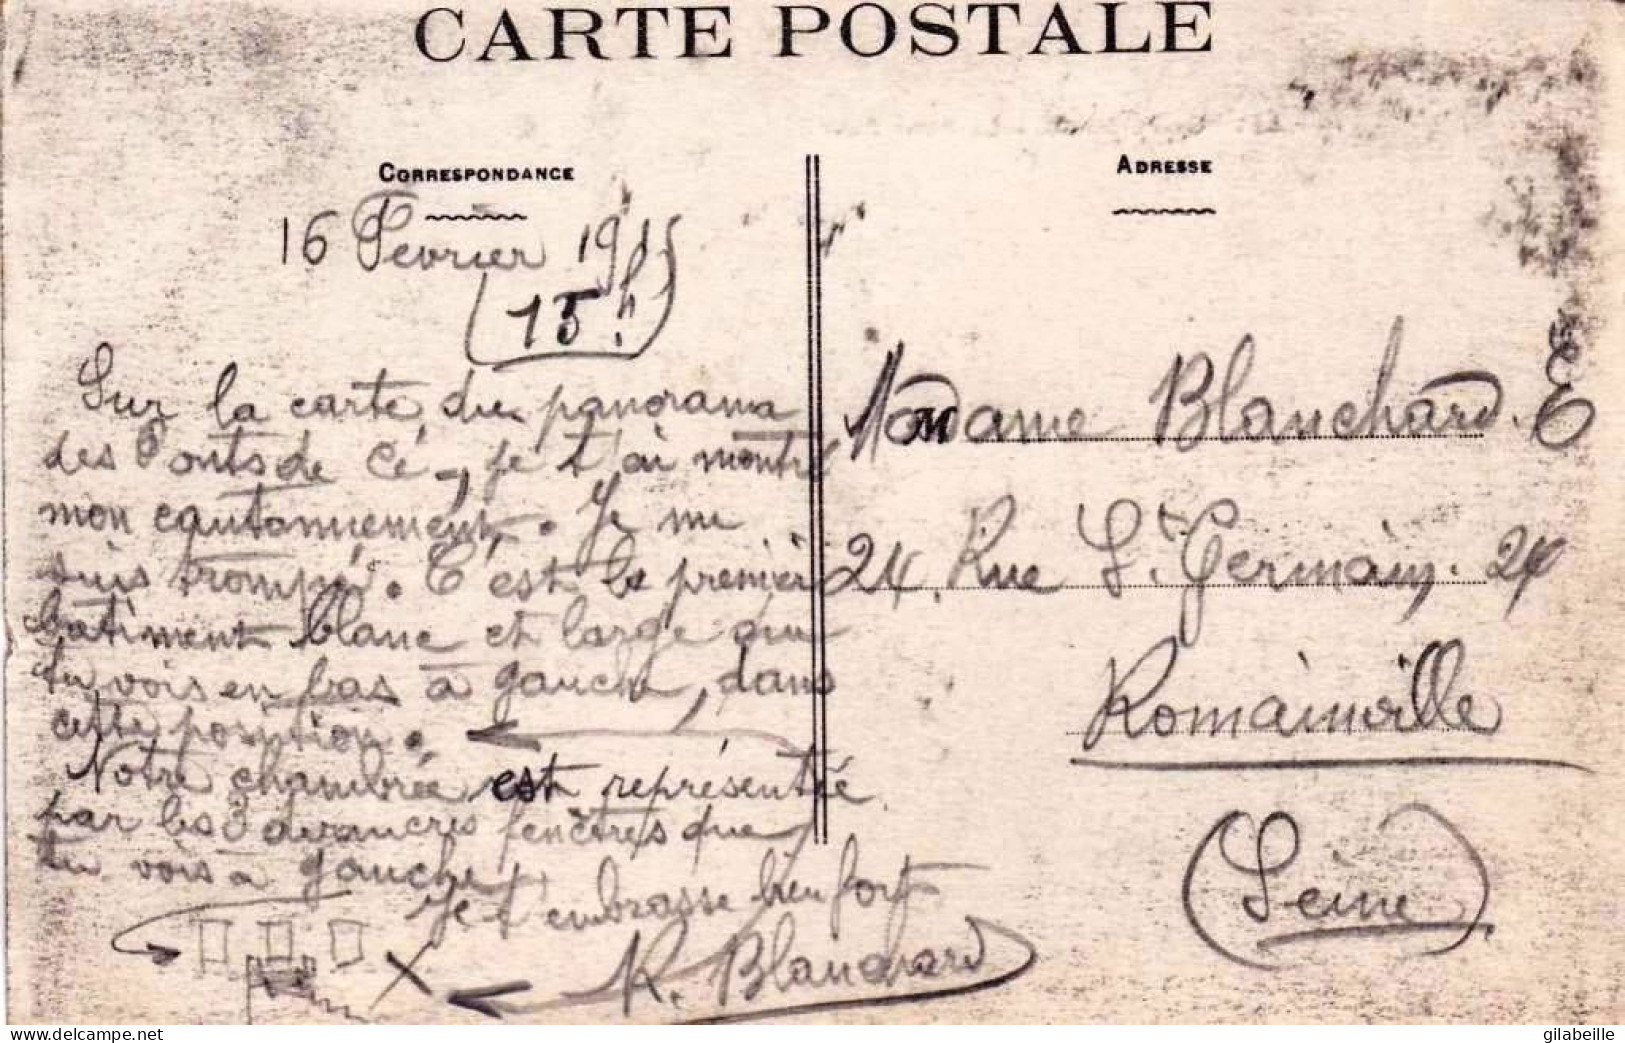 CARTE POSTALE
CORRESPONDANCE
16 Fevrier 1915
(15h)
Sur la carte du panorama
des Ponts de Cé, je t'ai montré
mon cantonnement. Je me
suis trompé. C'est le premier
bâtiment blanc et large que
tu vois en bas à gauche, dans
cette position.
Notre chambrée est représentée
par les 3 dernières fenêtres que
tu vois à gauche
Je t'embrasse bien fort
R. Blanchard
ADRESSE
Madame Blanchard. E
24. Rue St. Germain. 24
Romainville
(Seine)
delcampe.net
gilabeille